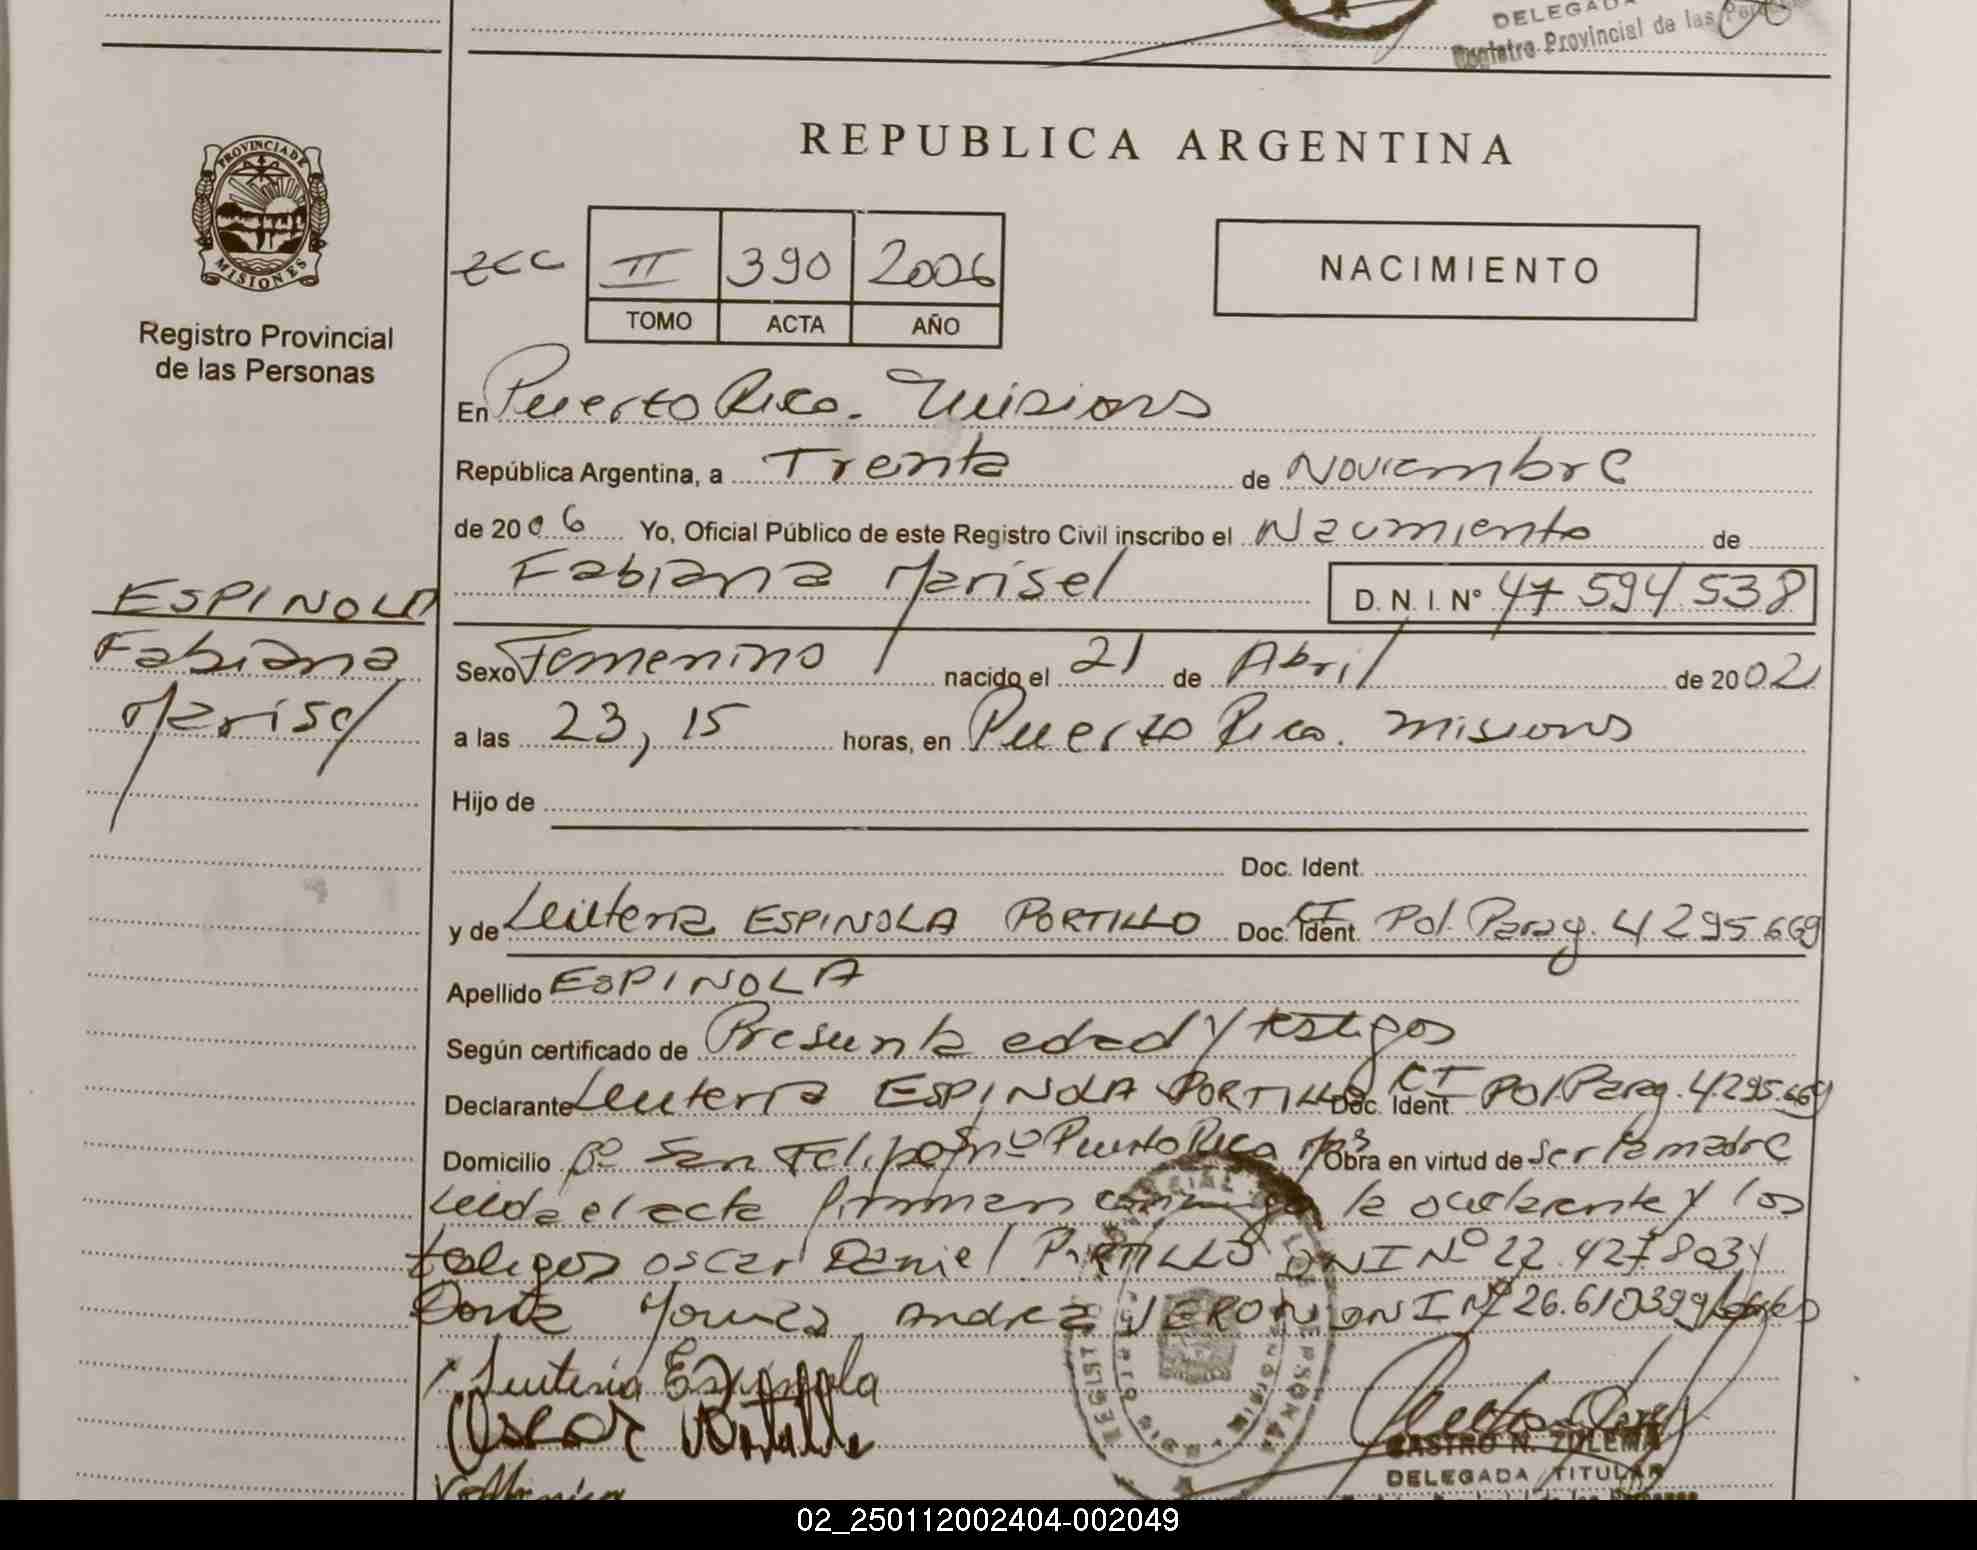 DELEGADA
Registro Provincial de las Personas
REPUBLICA ARGENTINA
PROVINCIA DE
MISIONES
Registro Provincial
de las Personas
II 390 2006
TOMO ACTA AÑO
NACIMIENTO
En Puerto Rico. Misiones
República Argentina, a Treinta de Noviembre
de 2006 Yo, Oficial Público de este Registro Civil inscribo el Nacimiento de
Fabiana Marisel D. N. I. N° 47 594 538
ESPINOLA
Fabiana
Marisel
Sexo Femenino nacido el 21 de Abril de 2002
a las 23,15 horas, en Puerto Rico. Misiones
Hijo de
Doc. Ident.
y de Leuteria ESPINOLA PORTILLO Doc. Ident. CI Pol. Parag. 4295.669
Apellido ESPINOLA
Según certificado de Presunta edad y testigos
Declarante Leuteria ESPINOLA PORTILLO Doc. Ident. CI Pol Parag. 4.295.669
Domicilio B° San Felipe Puerto Rico Mns Obra en virtud de ser la madre
Leída el acta firman conmigo la declarante y los
testigos Oscar Daniel PORTILLO DNI N° 22.427.803 y
Doña Andrea VERON DNI N° 26.610399
Leuteria Espinola
Oscar Portillo
CASTRO N. ZULEMA
DELEGADA TITULAR
02_250112002404-002049